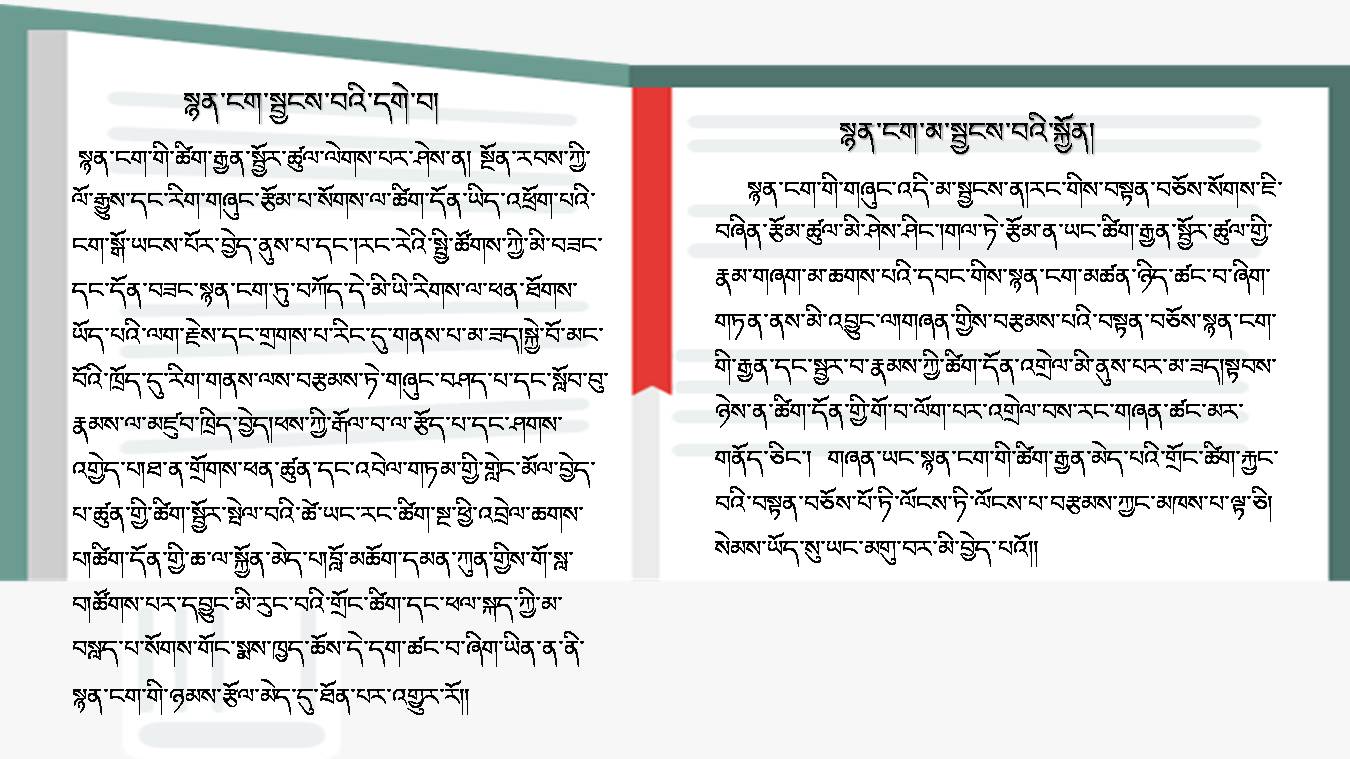 སྙན་ངག་སྦྱངས་བའི་དགེ་བ།
སྙན་ངག་གི་ཚིག་རྒྱན་སྦྱོར་ཚུལ་ལེགས་པར་ཤེས་ན། སྔོན་རབས་ཀྱི་
ལོ་རྒྱུས་དང་རིག་གཞུང་རྩོམ་པ་སོགས་ལ་ཚིག་དོན་ཡིད་འཕྲོག་པའི་
ངག་སྒོ་ཡངས་པོར་བྱེད་ནུས་པ་དང་།རང་རེའི་སྤྱི་ཚོགས་ཀྱི་མི་བཟང་
དང་དོན་བཟང་སྙན་ངག་ཏུ་བཀོད་དེ་མི་ཡི་རིགས་ལ་ཕན་ཐོགས་
ཡོད་པའི་ལག་རྗེས་དང་གྲགས་པ་རིང་དུ་གནས་པ་མ་ཟད།སྐྱེ་བོ་མང་
བོའི་ཁྲོད་དུ་རིག་གནས་ལས་བརྩམས་ཏེ་གཞུང་བཤད་པ་དང་སློབ་བུ་
རྣམས་ལ་མཛུབ་ཁྲིད་བྱེད།ཕས་ཀྱི་རྒོལ་བ་ལ་རྩོད་པ་དང་ཤགས་
འགྱེད་པ།ཐ་ན་གྲོགས་ཕན་ཚུན་དང་འབེལ་གཏམ་གྱི་གླེང་མོལ་བྱེད་
པ་ཚུན་གྱི་ཚིག་སྦྱོར་སྤེལ་བའི་ཚེ་ཡང་རང་ཚིག་སྔ་ཕྱི་འབྲེལ་ཆགས་
པ།ཚིག་དོན་གྱི་ཆ་ལ་སྐྱོན་མེད་པ།བློ་མཆོག་དམན་ཀུན་གྱིས་གོ་སླ་
བ།ཚོགས་པར་དབྱུང་མི་རུང་བའི་གྲོང་ཚིག་དང་ཕལ་སྐད་ཀྱི་མ་
བསླད་པ་སོགས་གོང་སྨྲས་ཁྱད་ཆོས་དེ་དག་ཚང་བ་ཞིག་ཡིན་ན་ནི་
སྙན་ངག་གི་ཉམས་རྩོལ་མེད་དུ་ཐོན་པར་འགྱུར་རོ།།
སྙན་ངག་མ་སྦྱངས་བའི་སྐྱོན།
སྙན་ངག་གི་གཞུང་འདི་མ་སྦྱངས་ན།རང་གིས་བསྟན་བཅོས་སོགས་ཇི་
བཞིན་རྩོམ་ཚུལ་མི་ཤེས་ཤིང་།གལ་ཏེ་རྩོམ་ན་ཡང་ཚིག་རྒྱན་སྦྱོར་ཚུལ་གྱི་
རྣམ་གཞག་མ་ཆགས་པའི་དབང་གིས་སྙན་ངག་མཚན་ཉིད་ཚང་བ་ཞིག་
གཏན་ནས་མི་འབྱུང་ལ།གཞན་གྱིས་བརྩམས་པའི་བསྟན་བཅོས་སྙན་ངག་
གི་རྒྱན་དང་སྦྱར་བ་རྣམས་ཀྱི་ཚིག་དོན་འགྲེལ་མི་ནུས་པར་མ་ཟད།སྟབས་
ཉེས་ན་ཚིག་དོན་གྱི་གོ་བ་ལོག་པར་འགྲེལ་བས་རང་གཞན་ཚང་མར་
གནོད་ཅིང་། གཞན་ཡང་སྙན་ངག་གི་ཚིག་རྒྱན་མེད་པའི་གྲོང་ཚིག་རྐྱང་
བའི་བསྟན་བཅོས་པོ་ཏི་ལོངས་ཏི་ལོངས་པ་བརྩམས་ཀྱང་མཁས་པ་ལྟ་ཅི།
སེམས་ཡོད་སུ་ཡང་མགུ་བར་མི་བྱེད་པའོ།།